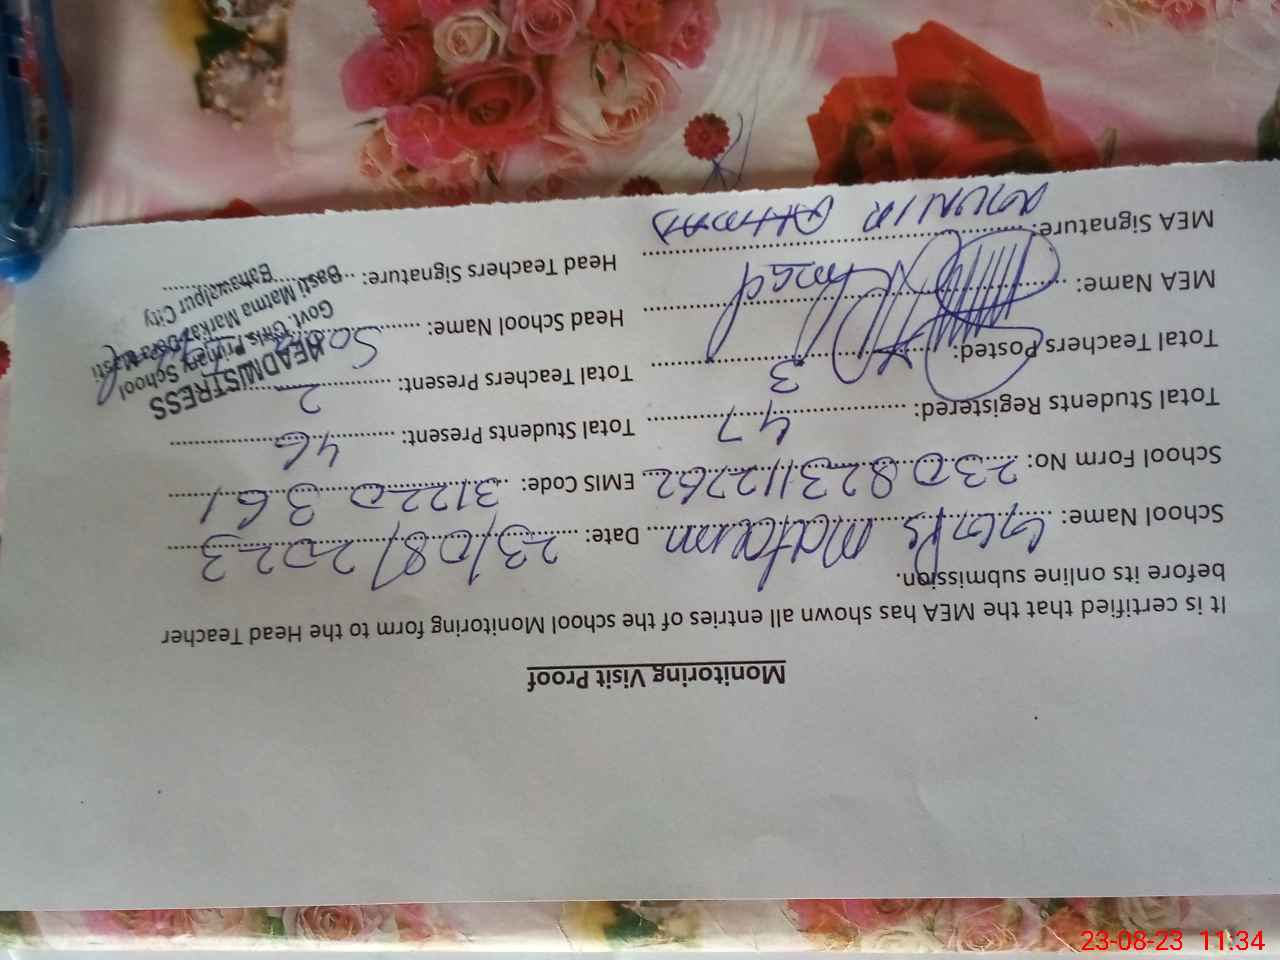 Monitoring Visit Proof
It is certified that the MEA has shown all entries of the school Monitoring form to the Head Teacher
before its online submission.
School Name: Date: 23/08/2023
School Form No: 230823112762 EMIS Code: 31220361
Total Students Registered: 47 Total Students Present: 46
Total Teachers Posted: 3 Total Teachers Present: 2
MEA Name: Head School Name:
MEA Signature: MUNIR AHMAD Head Teachers Signature:
HEADMISTRESS
Govt. Girls Primary School
Basti Matma Markaz
Bahawalpur City
23-08-23 11:34